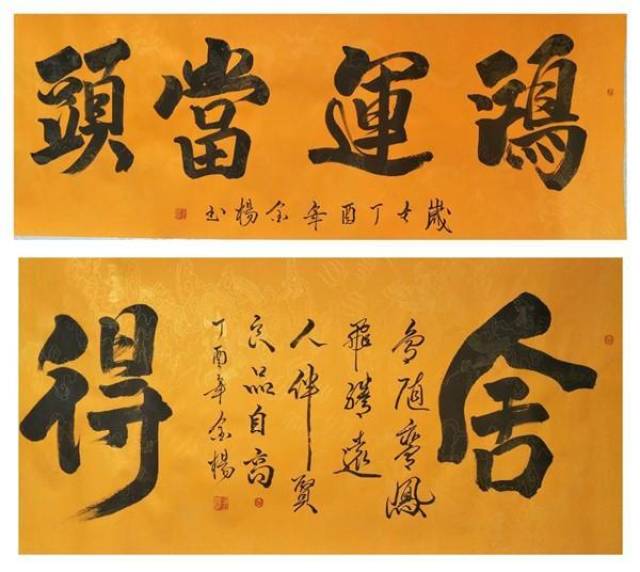 鴻運當頭
歲在丁酉年金楊書
舍得
鳥随鸞鳳
飛騰遠
人伴賢
良品自高
丁酉年金楊